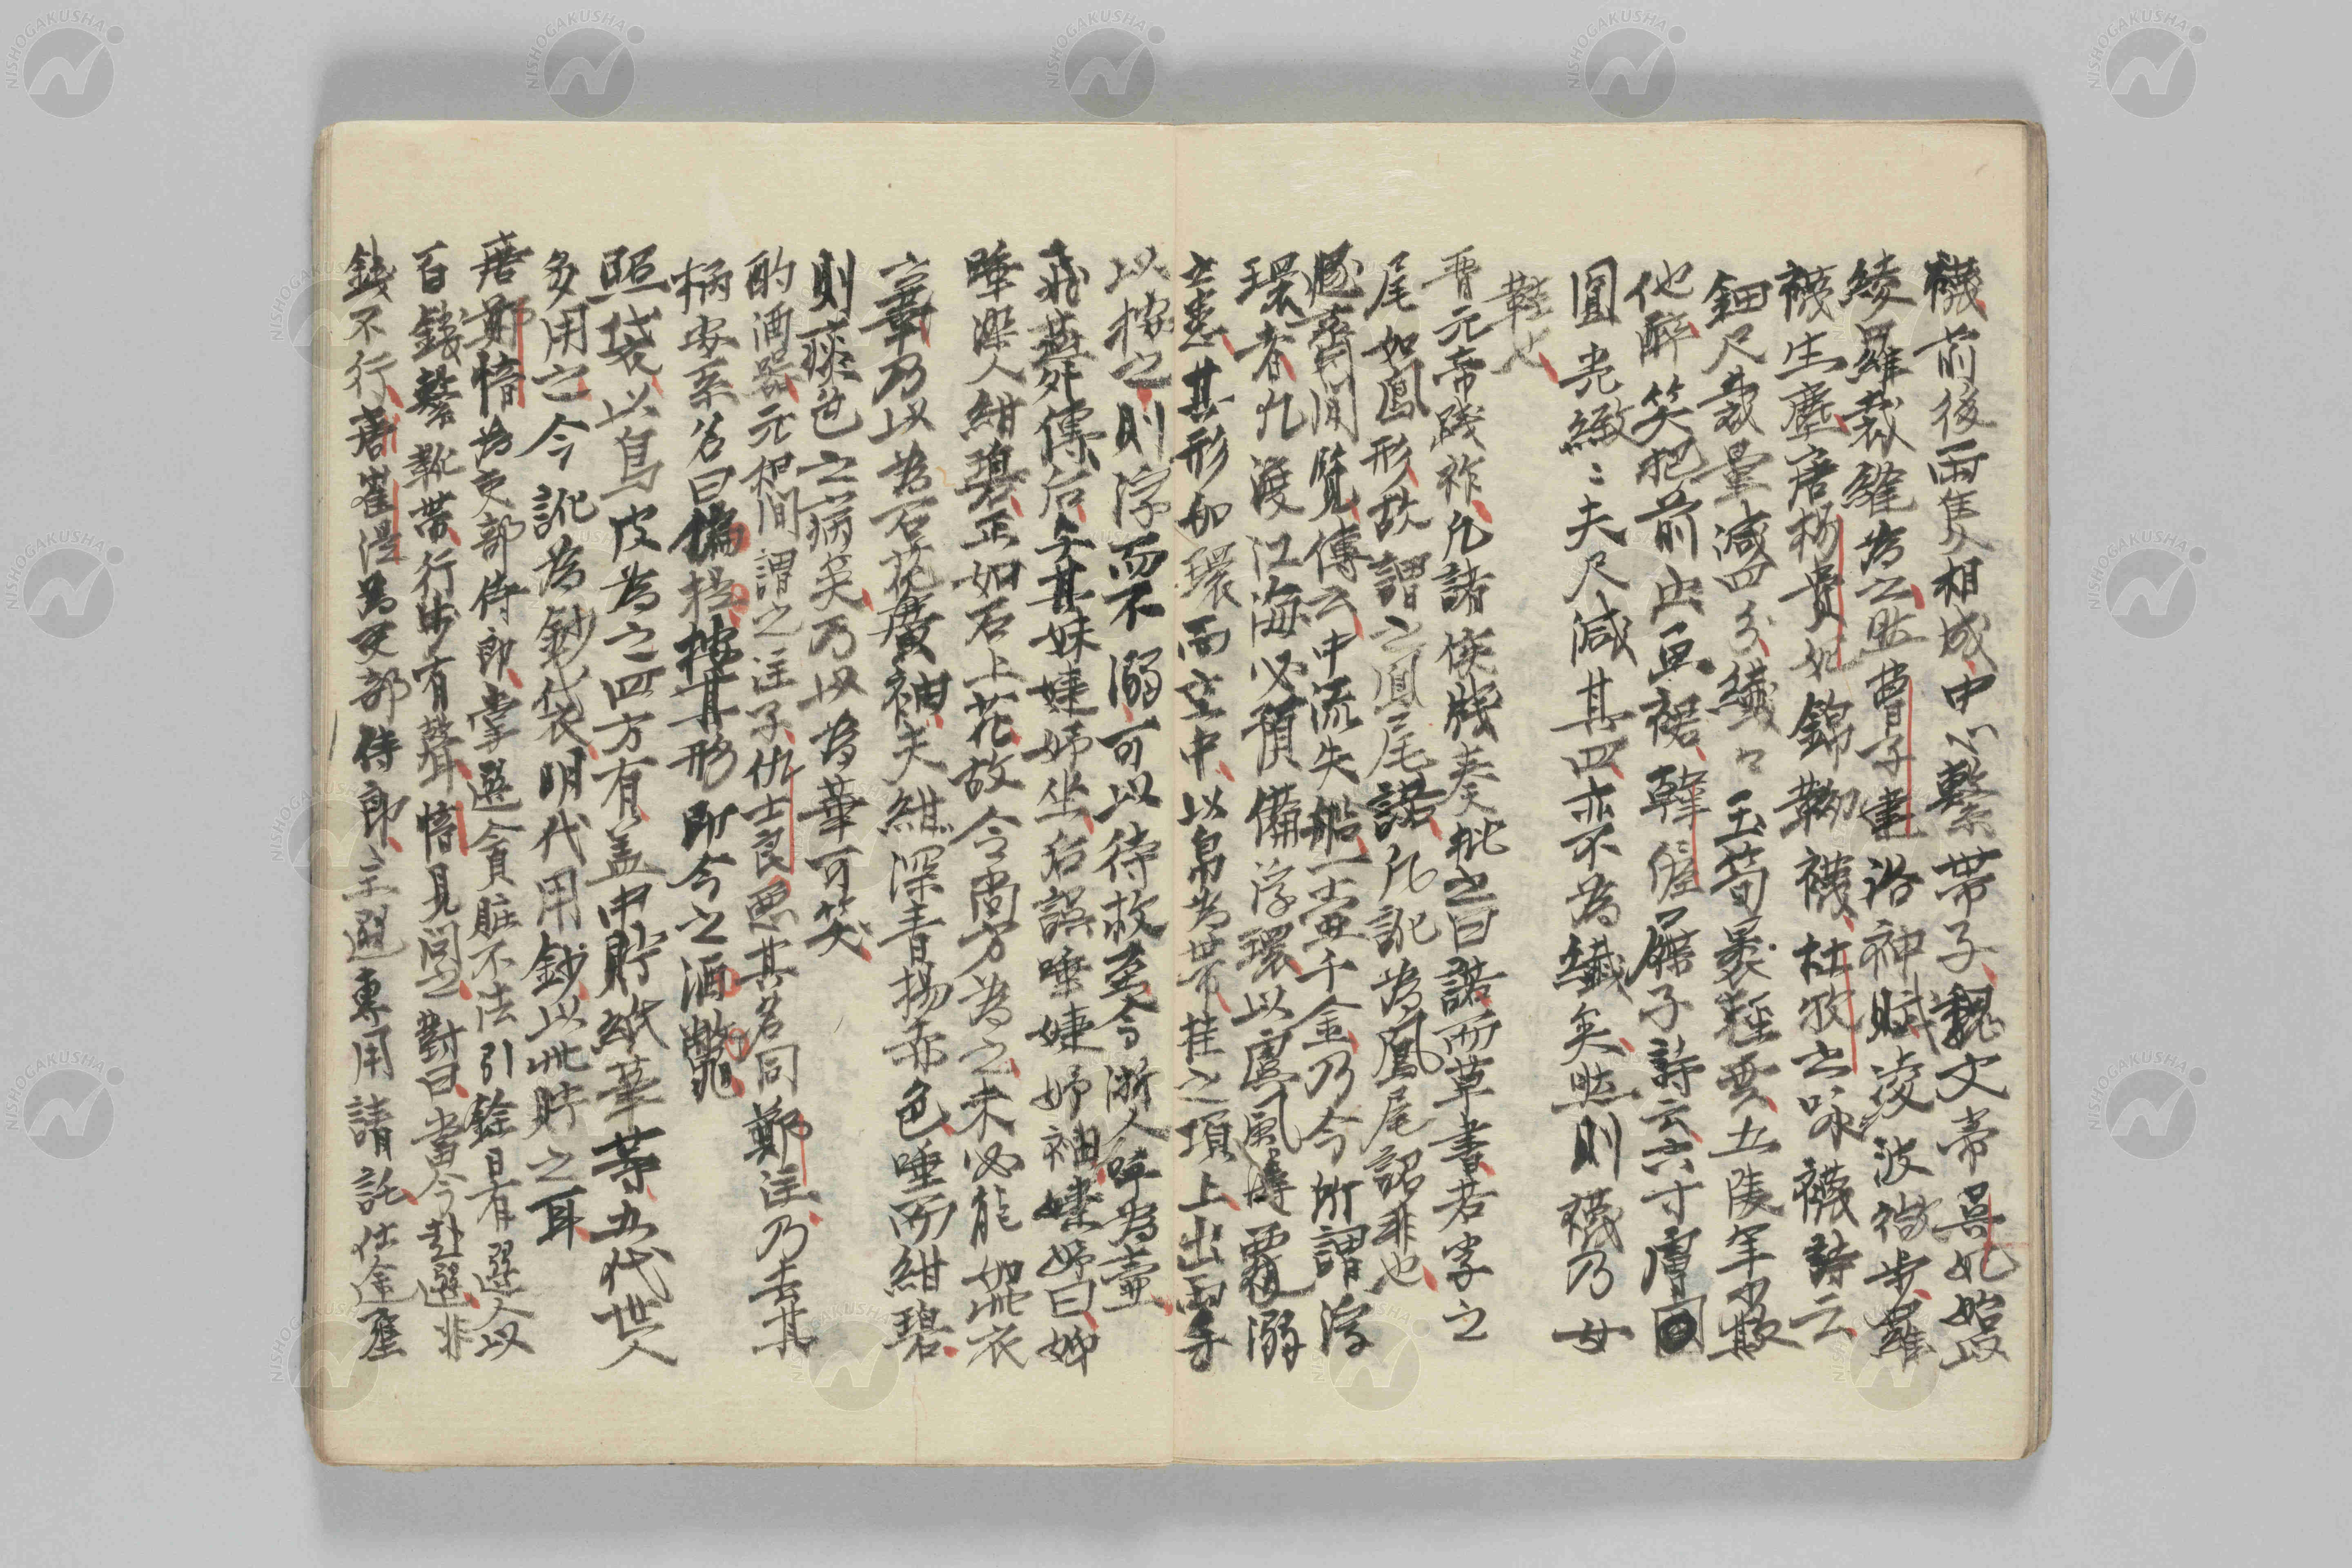 襪前後兩隻相成中心繫帶子魏文帝吳妃始以
綾羅裁縫為之然曹子建洛神賦凌波微步羅
襪生塵唐楊貴妃錦靿襪杜牧之咏襪詩云
鈿尺裁量減四分纖々玉筍裹輕雲五陵年少欺
他醉笑把前出畫裙韓偓屧子詩云六寸膚圓
圓光緻ミ夫尺減其四亦不為纖矣然則襪乃女
鞋也
晉元帝踐祚凡諸侯牋奏批之曰諾而草書若字之
尾如鳳形故謂之鳳尾諾凡訛為鳳尾詔非也
豚齋閒覽傳云中流失船一壺千金乃今所謂浮
環者凡渡江海必預備浮環以虞風濤覆溺
之患其形如環而空中以帛為帶挂之項上出兩手
以按之則浮而不溺可以待救至今浙人呼為壺
飛燕外傳后與其妹婕妤坐后誤唾婕妤袖婕妤曰姊
唾染人紺碧正如石上花故令尚方為之未必能如此衣
之華乃以為石花廣袖夫紺深青揚赤色唾而紺碧
則痰色之病矣乃以為華可笑
酌酒器元和間謂之注子仇士良惡其名同鄭注乃去其
柄安系名曰偏提按其形即今之酒鱉
照袋以烏皮為之四方有盖中貯紙筆等五代世人
多用之今訛為鈔袋明代用鈔以此貯之耳
唐鄭愔為吏部侍郎掌選貪贓不法引銓日有選人以
百錢繫靴帶行步有聲愔見問之對曰當今赴選非
錢不行唐崔湜為吏部侍郎主選專用請託仕途壅